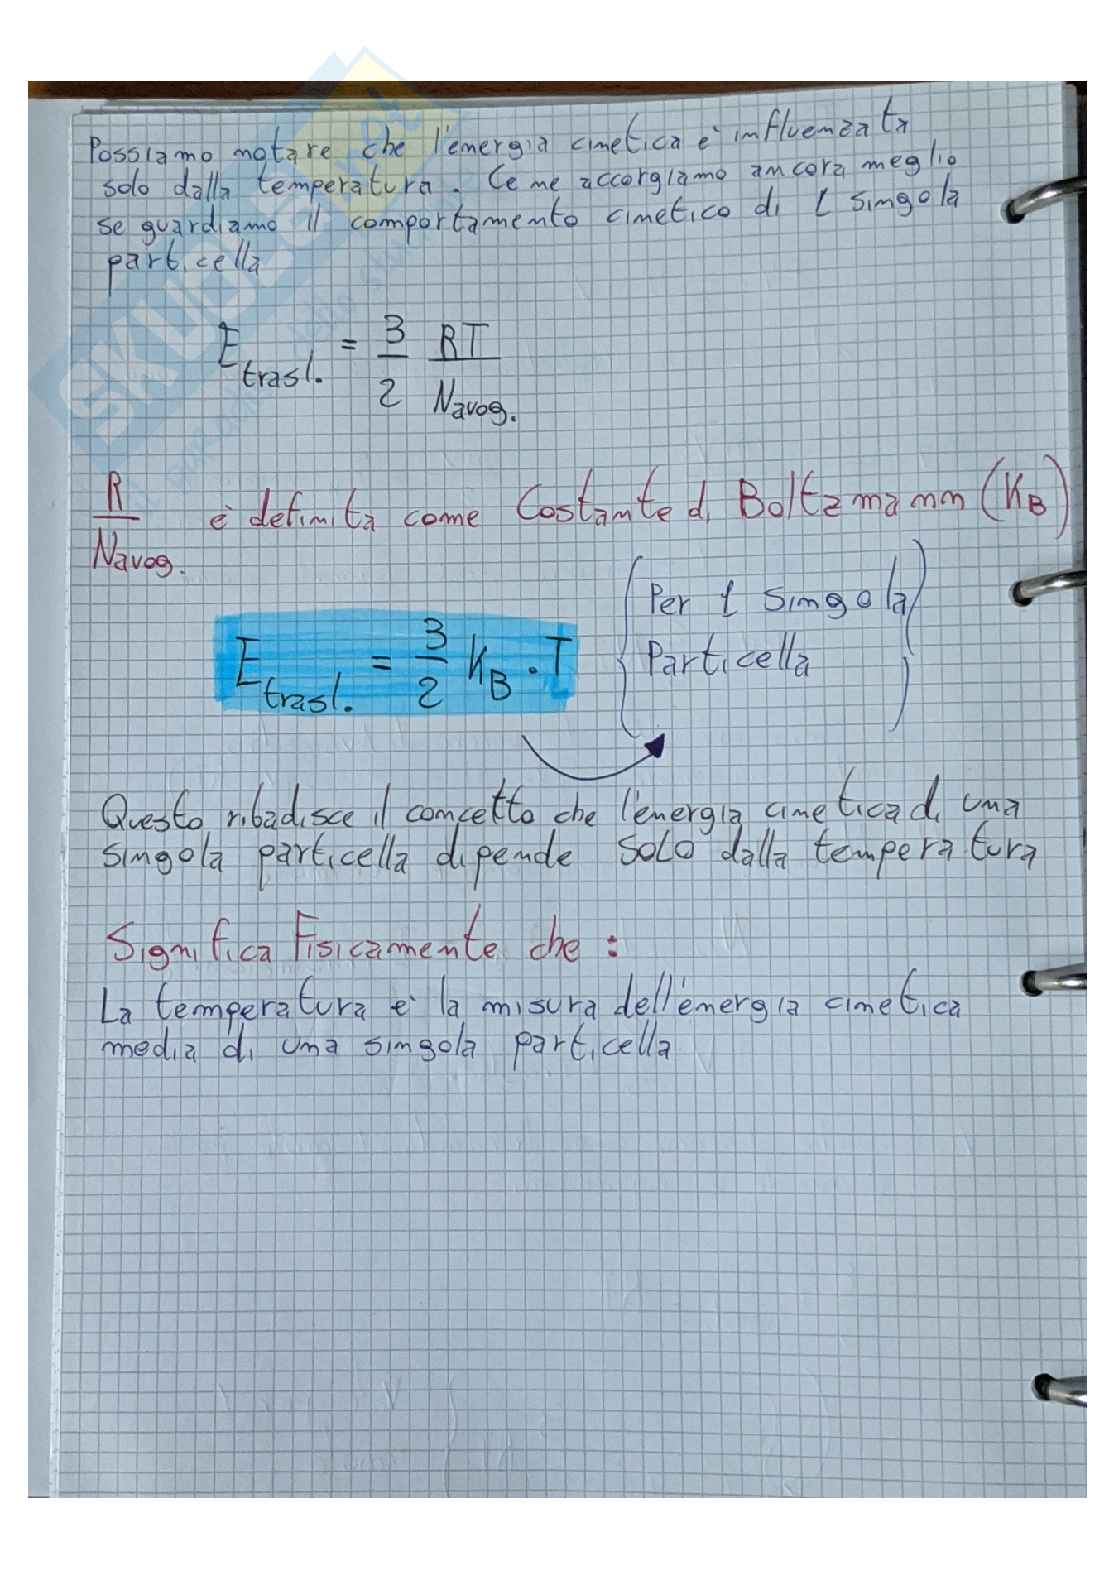 Possiamo notare che l'energia cinetica è influenzata
solo dalla temperatura. Ce ne accorgiamo ancora meglio
se guardiamo il comportamento cinetico di 1 singola
particella
E trasl. = 3/2 RT/Navog.
R/Navog. è definita come Costante di Boltzmann (KB)
E trasl. = 3/2 KB · T
(Per 1 singola
Particella)
Questo ribadisce il concetto che l'energia cinetica di una
singola particella dipende SOLO dalla temperatura
Significa Fisicamente che :
La temperatura è la misura dell'energia cinetica
media di una singola particella
SKUOLA